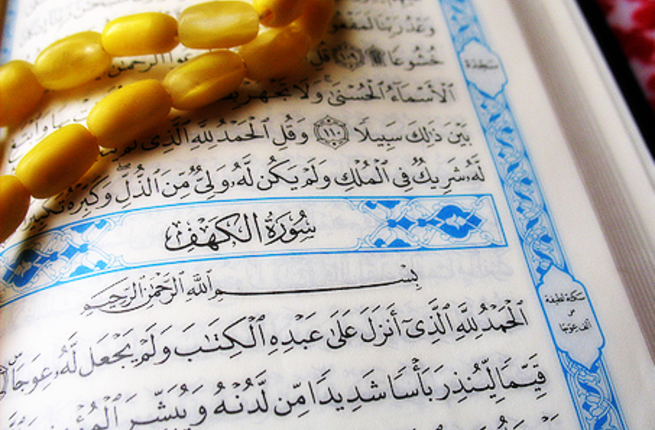 وَعْدُ رَبِّنَا لَمَفْعُولًا
خُشُوعًا ۩ ﴿١٠٩﴾ قُلِ
سجدة
الْأَسْمَاءُ الْحُسْنَىٰ وَلَا تَجْهَرْ
بَيْنَ ذَٰلِكَ سَبِيلًا ﴿١١٠﴾ وَقُلِ الْحَمْدُ لِلَّهِ الَّذِي لَمْ
لَهُ شَرِيكٌ فِي الْمُلْكِ وَلَمْ يَكُن لَّهُ وَلِيٌّ مِّنَ الذُّلِّ وَكَبِّرْهُ تَكْبِيرًا
سُورَةُ الْكَهْفِ
بِسْمِ اللَّهِ الرَّحْمَٰنِ الرَّحِيمِ
الْحَمْدُ لِلَّهِ الَّذِي أَنزَلَ عَلَىٰ عَبْدِهِ الْكِتَابَ وَلَمْ يَجْعَل لَّهُ عِوَجًا
قَيِّمًا لِّيُنذِرَ بَأْسًا شَدِيدًا مِّن لَّدُنْهُ وَيُبَشِّرَ الْمُؤْمِنِينَ
سكتة لطيفة
على
ألف عوجا